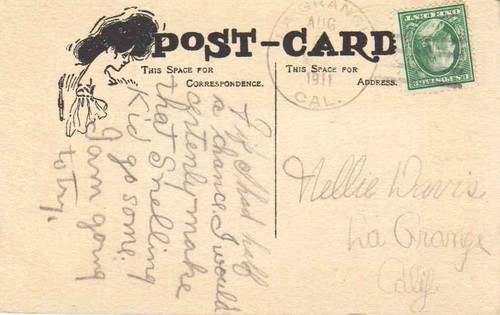 POST-CARD
THIS SPACE FOR
CORRESPONDENCE.
THIS SPACE FOR
ADDRESS.
LA GRANGE
AUG
1911
CAL.
U.S. POSTAGE
ONE CENT
If I had half
a chance I would
certenly make
that Snelling
Kid go some.
I am going
to try.
Nellie Davis
La Grange
Calif.